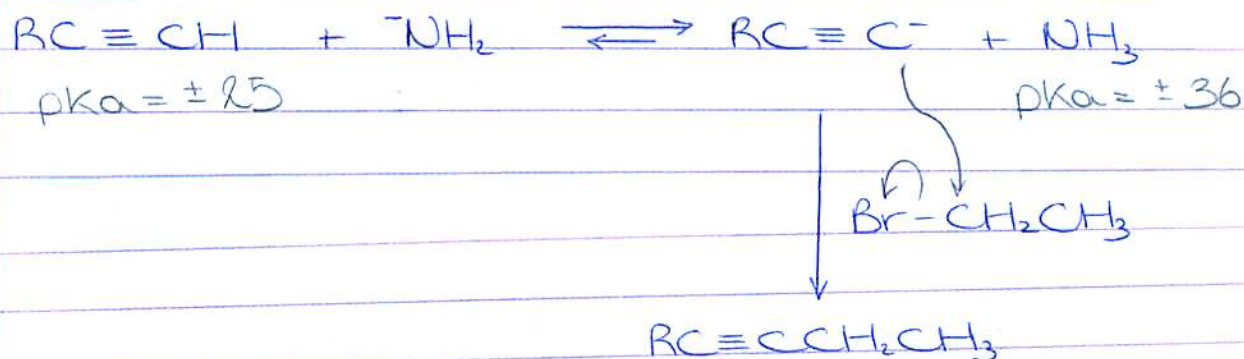 RC ≡ CH + ⁻NH₂ ⇌ RC ≡ C⁻ + NH₃
pKa = ± 25 pKa = ± 36
Br-CH₂CH₃
RC≡CCH₂CH₃